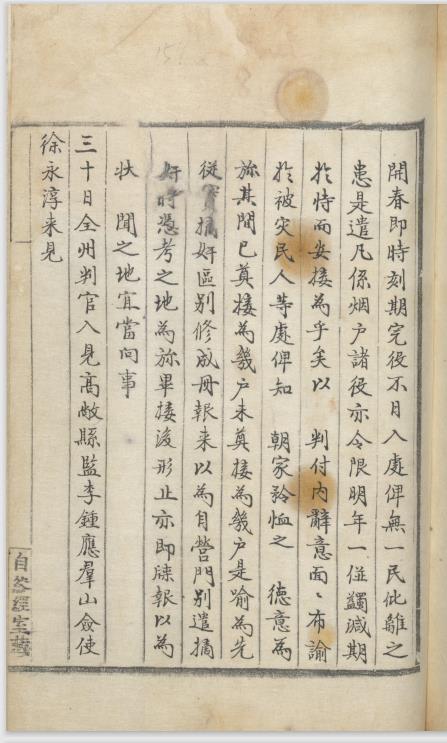 開春即時刻期完役不日入處俾無一民仳離之
患是遣凡係烟戶諸役亦令限明年一倂蠲减期
扵恃而安接為乎矣以 判付內辭意面〻布諭
扵被灾民人等處俾知 朝家矜恤之 德意為
旀其間已奠接為幾戶未奠接為幾戶是喩為先
從實摘奸區別修成冊報來以為自營門別遣摘
奸時憑考之地為旀畢接後形止亦即牒報以為
狀 聞之地宜當向事
三十日全州判官入見高敞縣監李鍾應羣山僉使
徐永淳来見
自
經室